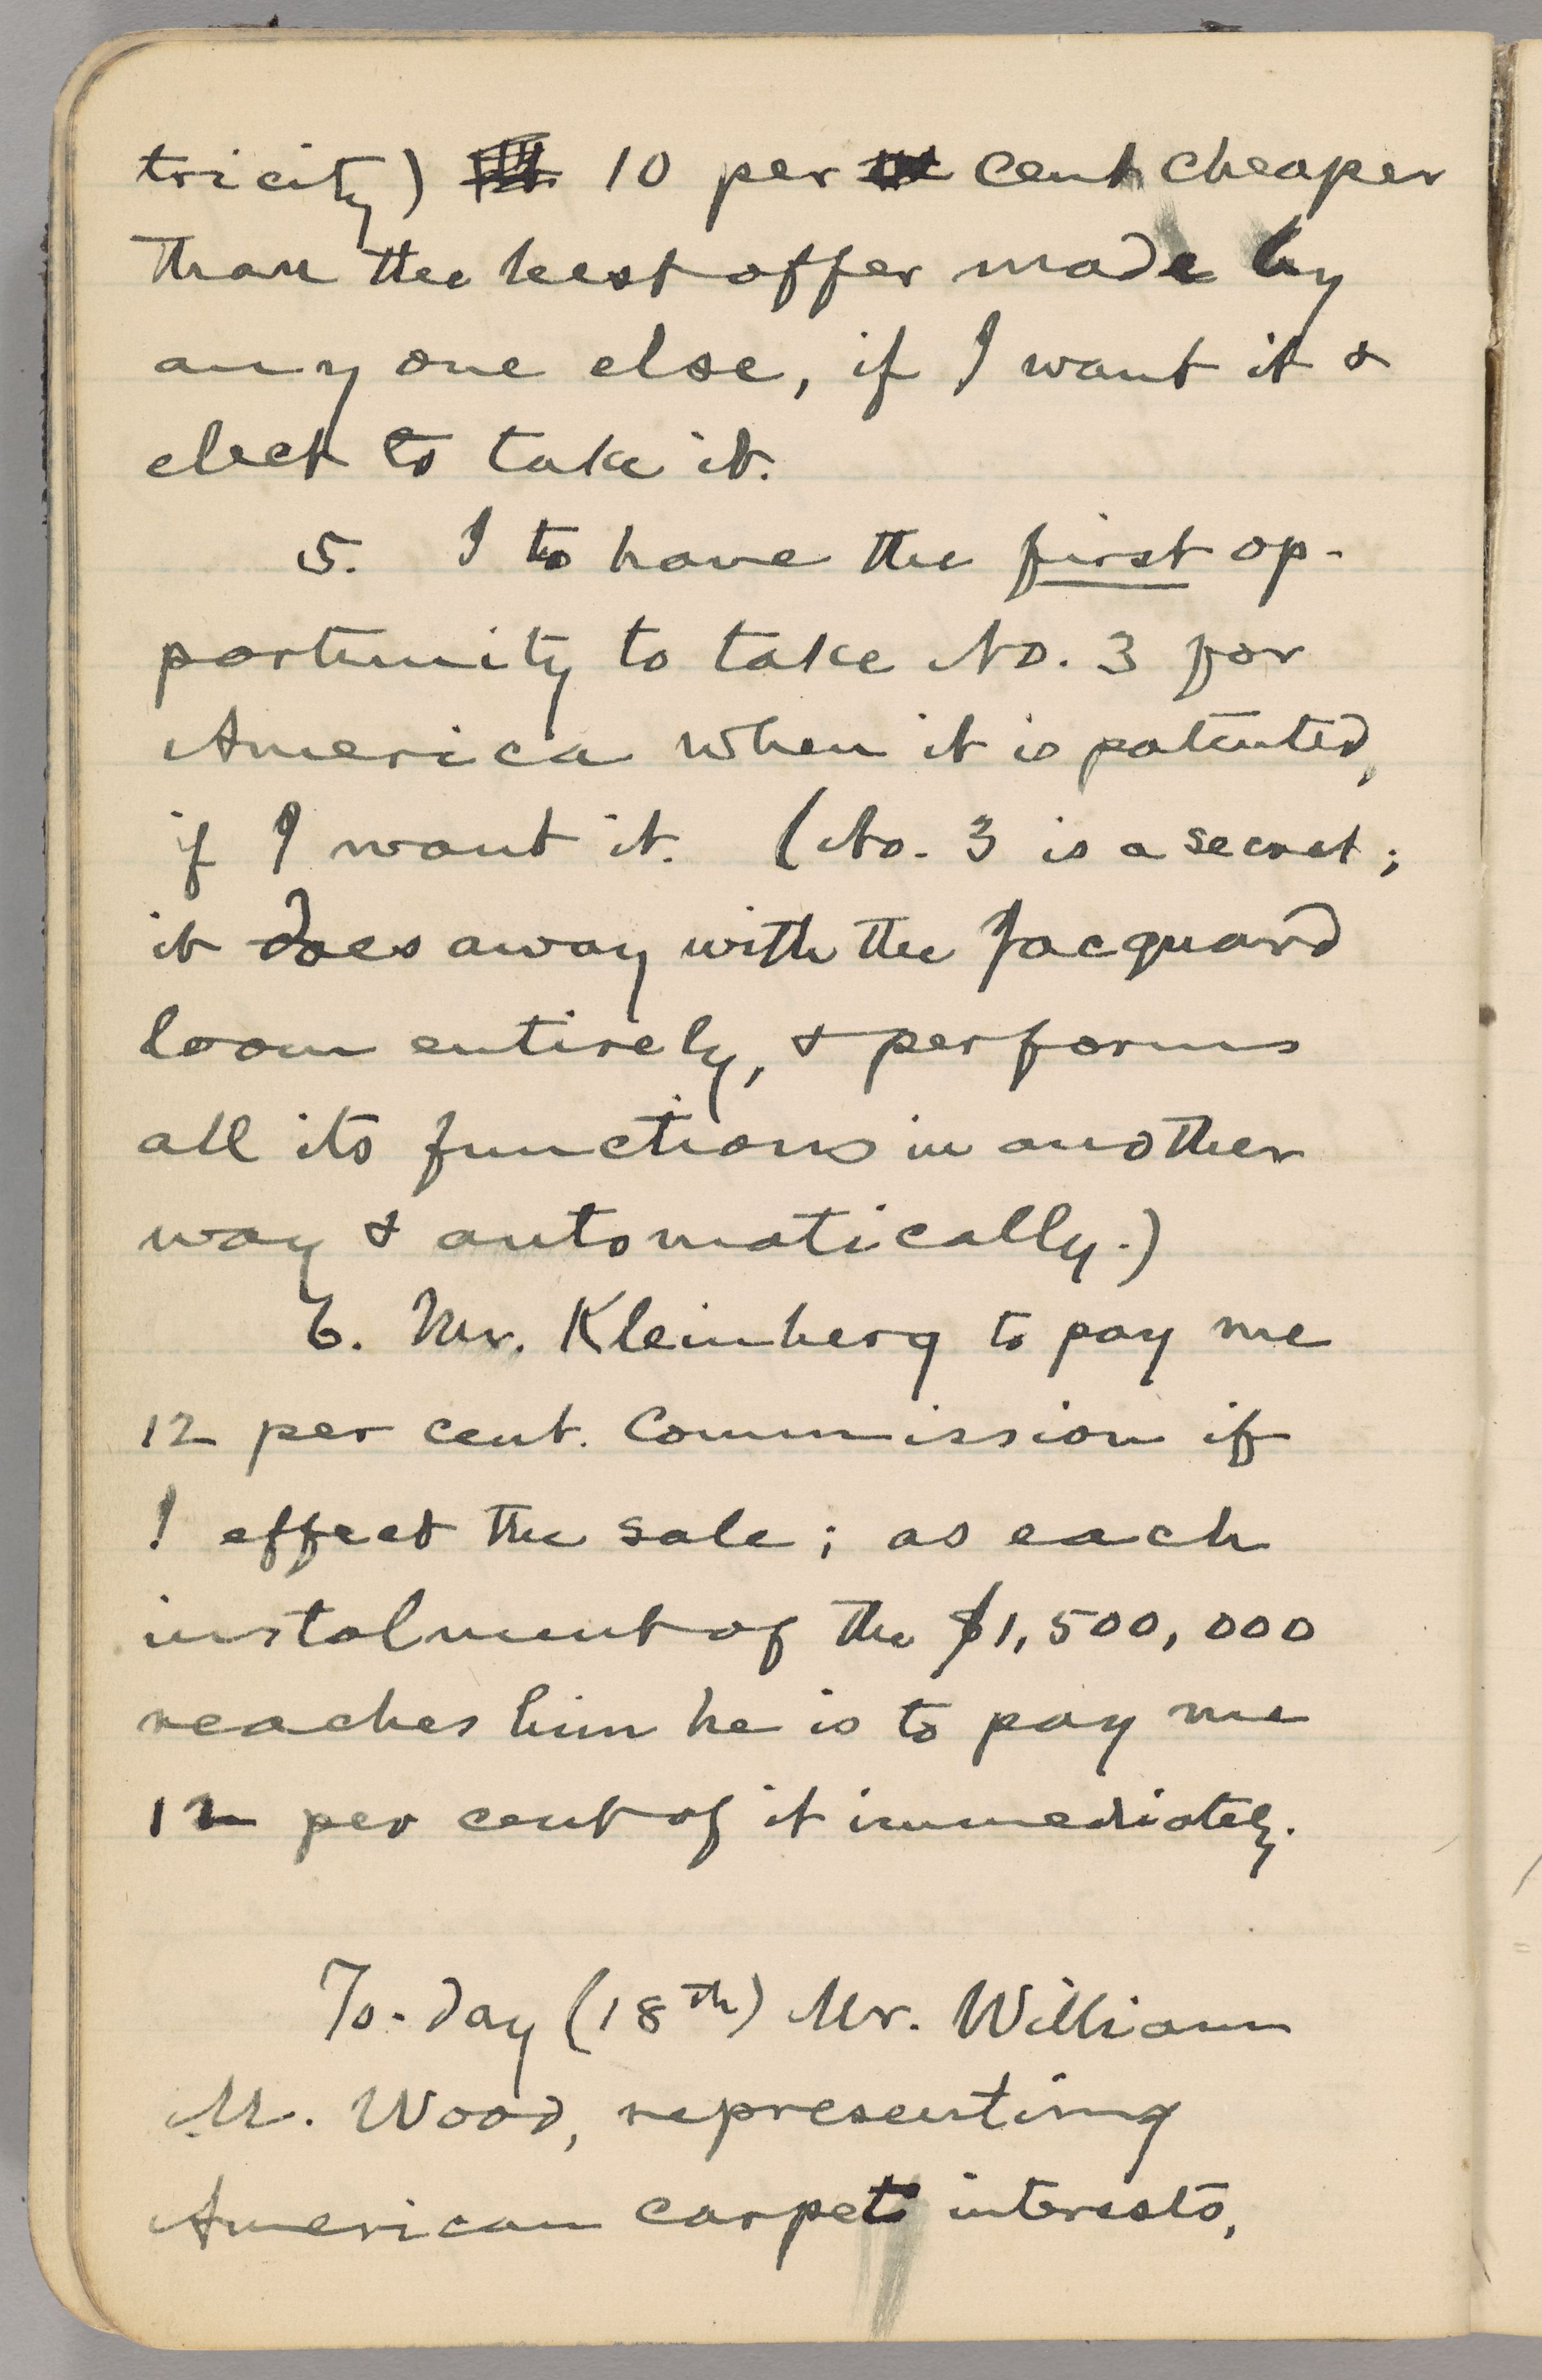 tricity) 10 per cent cheaper
than the best offer made by
any one else, if I want it &
elect to take it.
5. I to have the first op-
portunity to take No. 3 for
America when it is patented,
if I want it. (No. 3 is a secret;
it does away with the Jacquard
loom entirely, & performs
all its functions in another
way & automatically.)
6. Mr. Kleinberg to pay me
12 per cent. commission if
I effect the sale; as each
instalment of the $1,500,000
reaches him he is to pay me
12 per cent of it immediately.
To-day (18th) Mr. William
M. Wood, representing
American carpet interests,